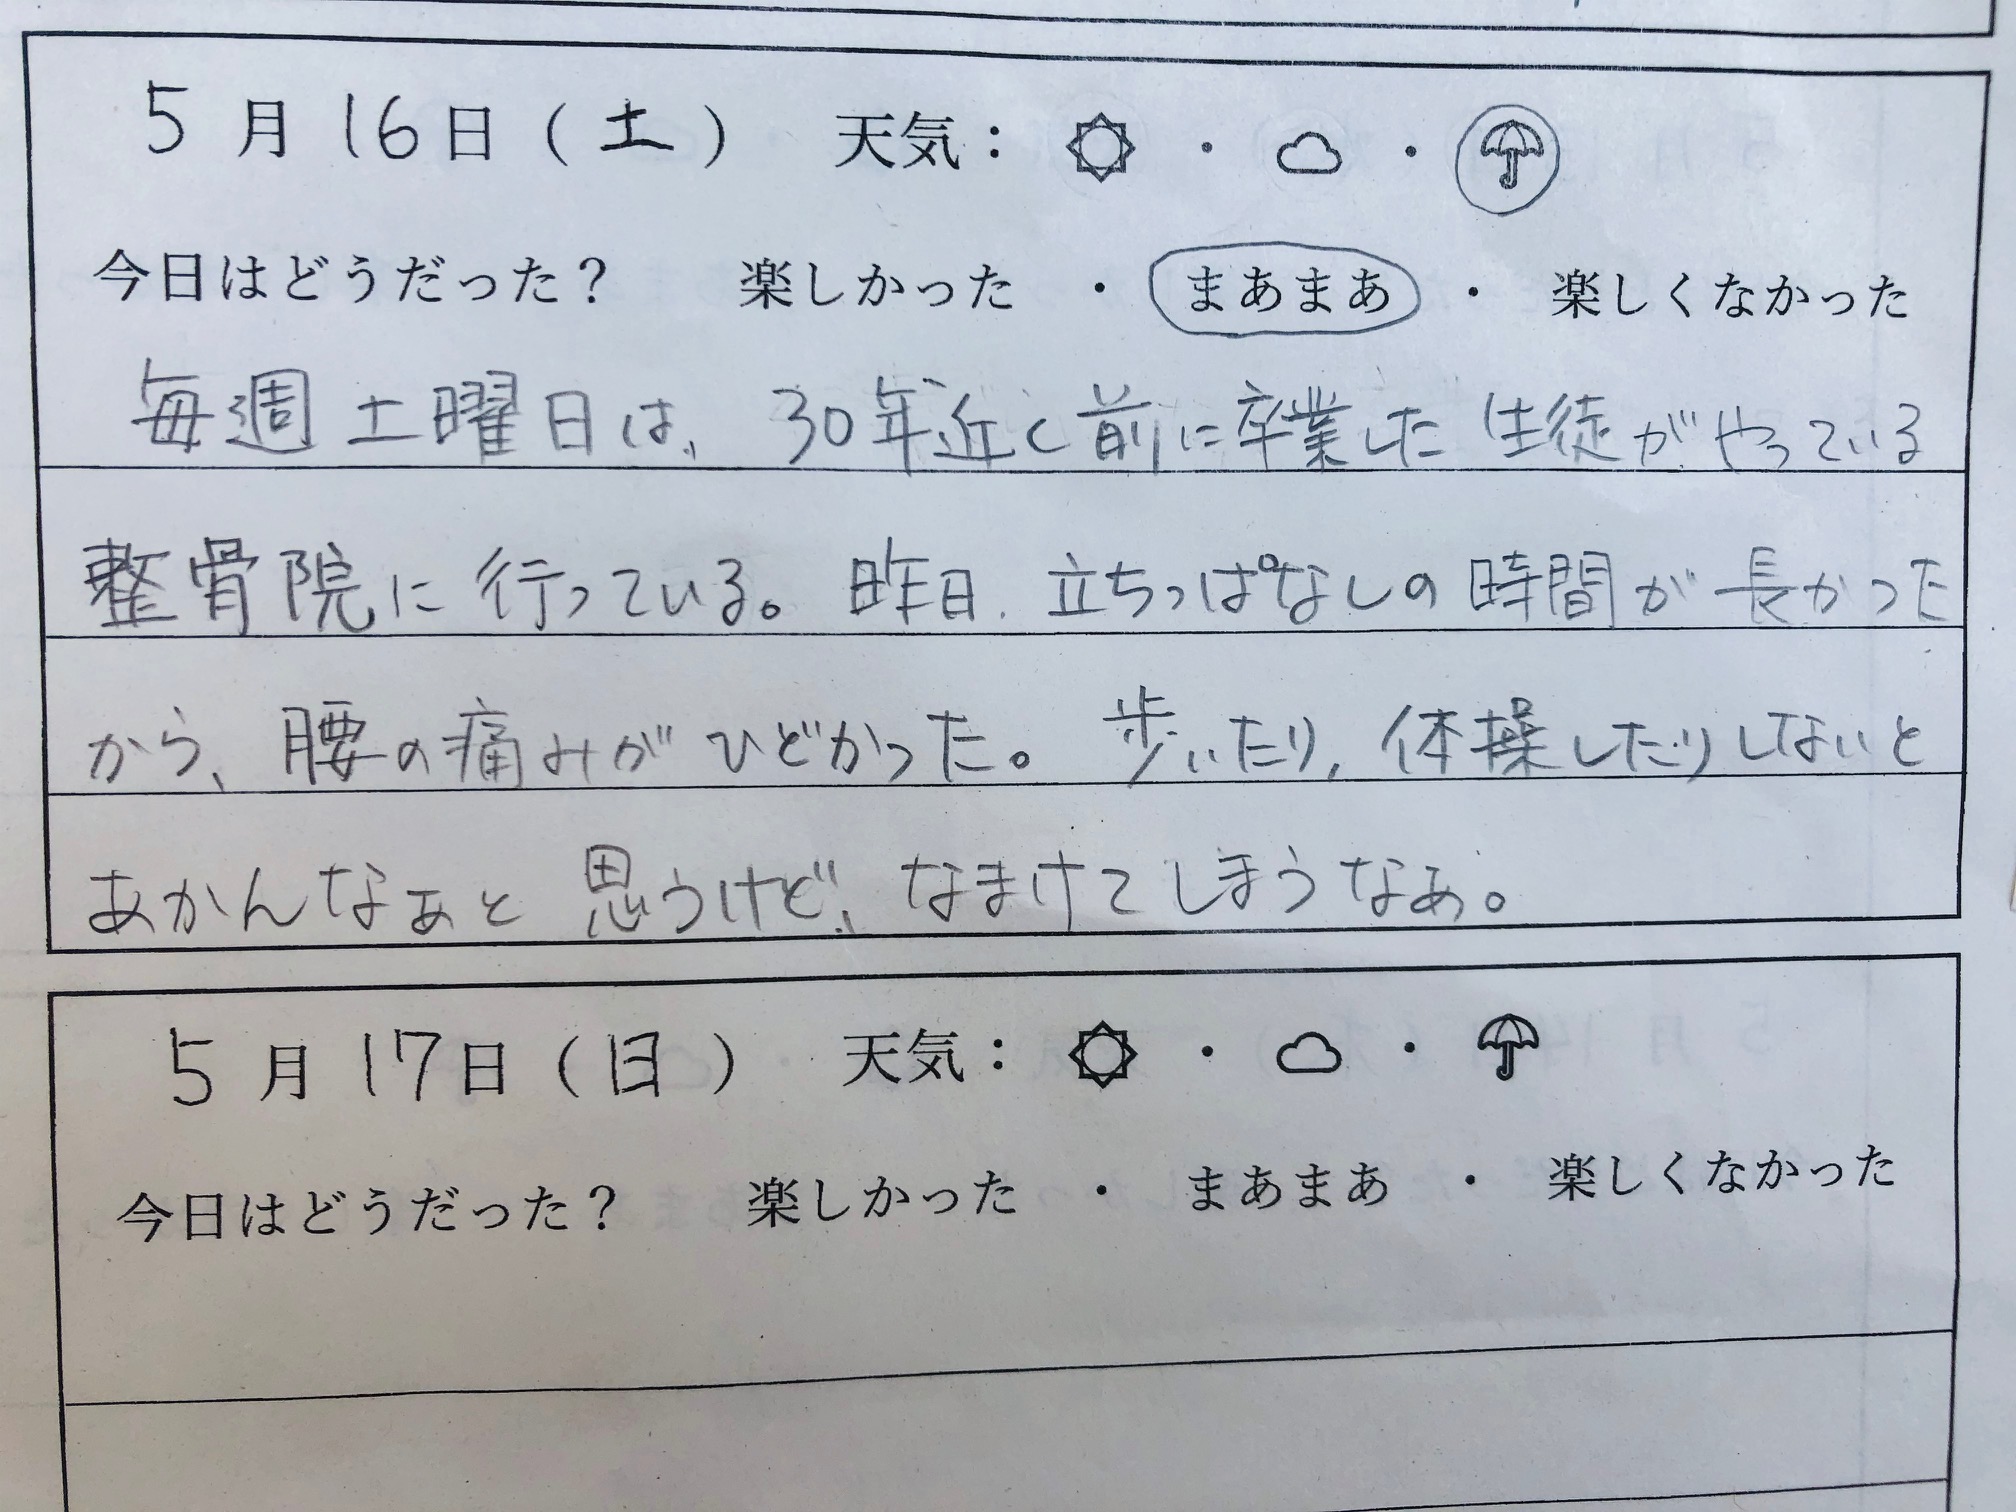 5月16日（土） 天気：☼・☁・☂
今日はどうだった？ 楽しかった ・ まあまあ ・ 楽しくなかった
毎週土曜日は、30年近く前に卒業した生徒がやっている
整骨院に行っている。昨日、立ちっぱなしの時間が長かった
から、腰の痛みがひどかった。歩いたり、体操したりしないと
あかんなぁと思うけど、なまけてしまうなぁ。
5月17日（日） 天気：☼・☁・☂
今日はどうだった？ 楽しかった ・ まあまあ ・ 楽しくなかった